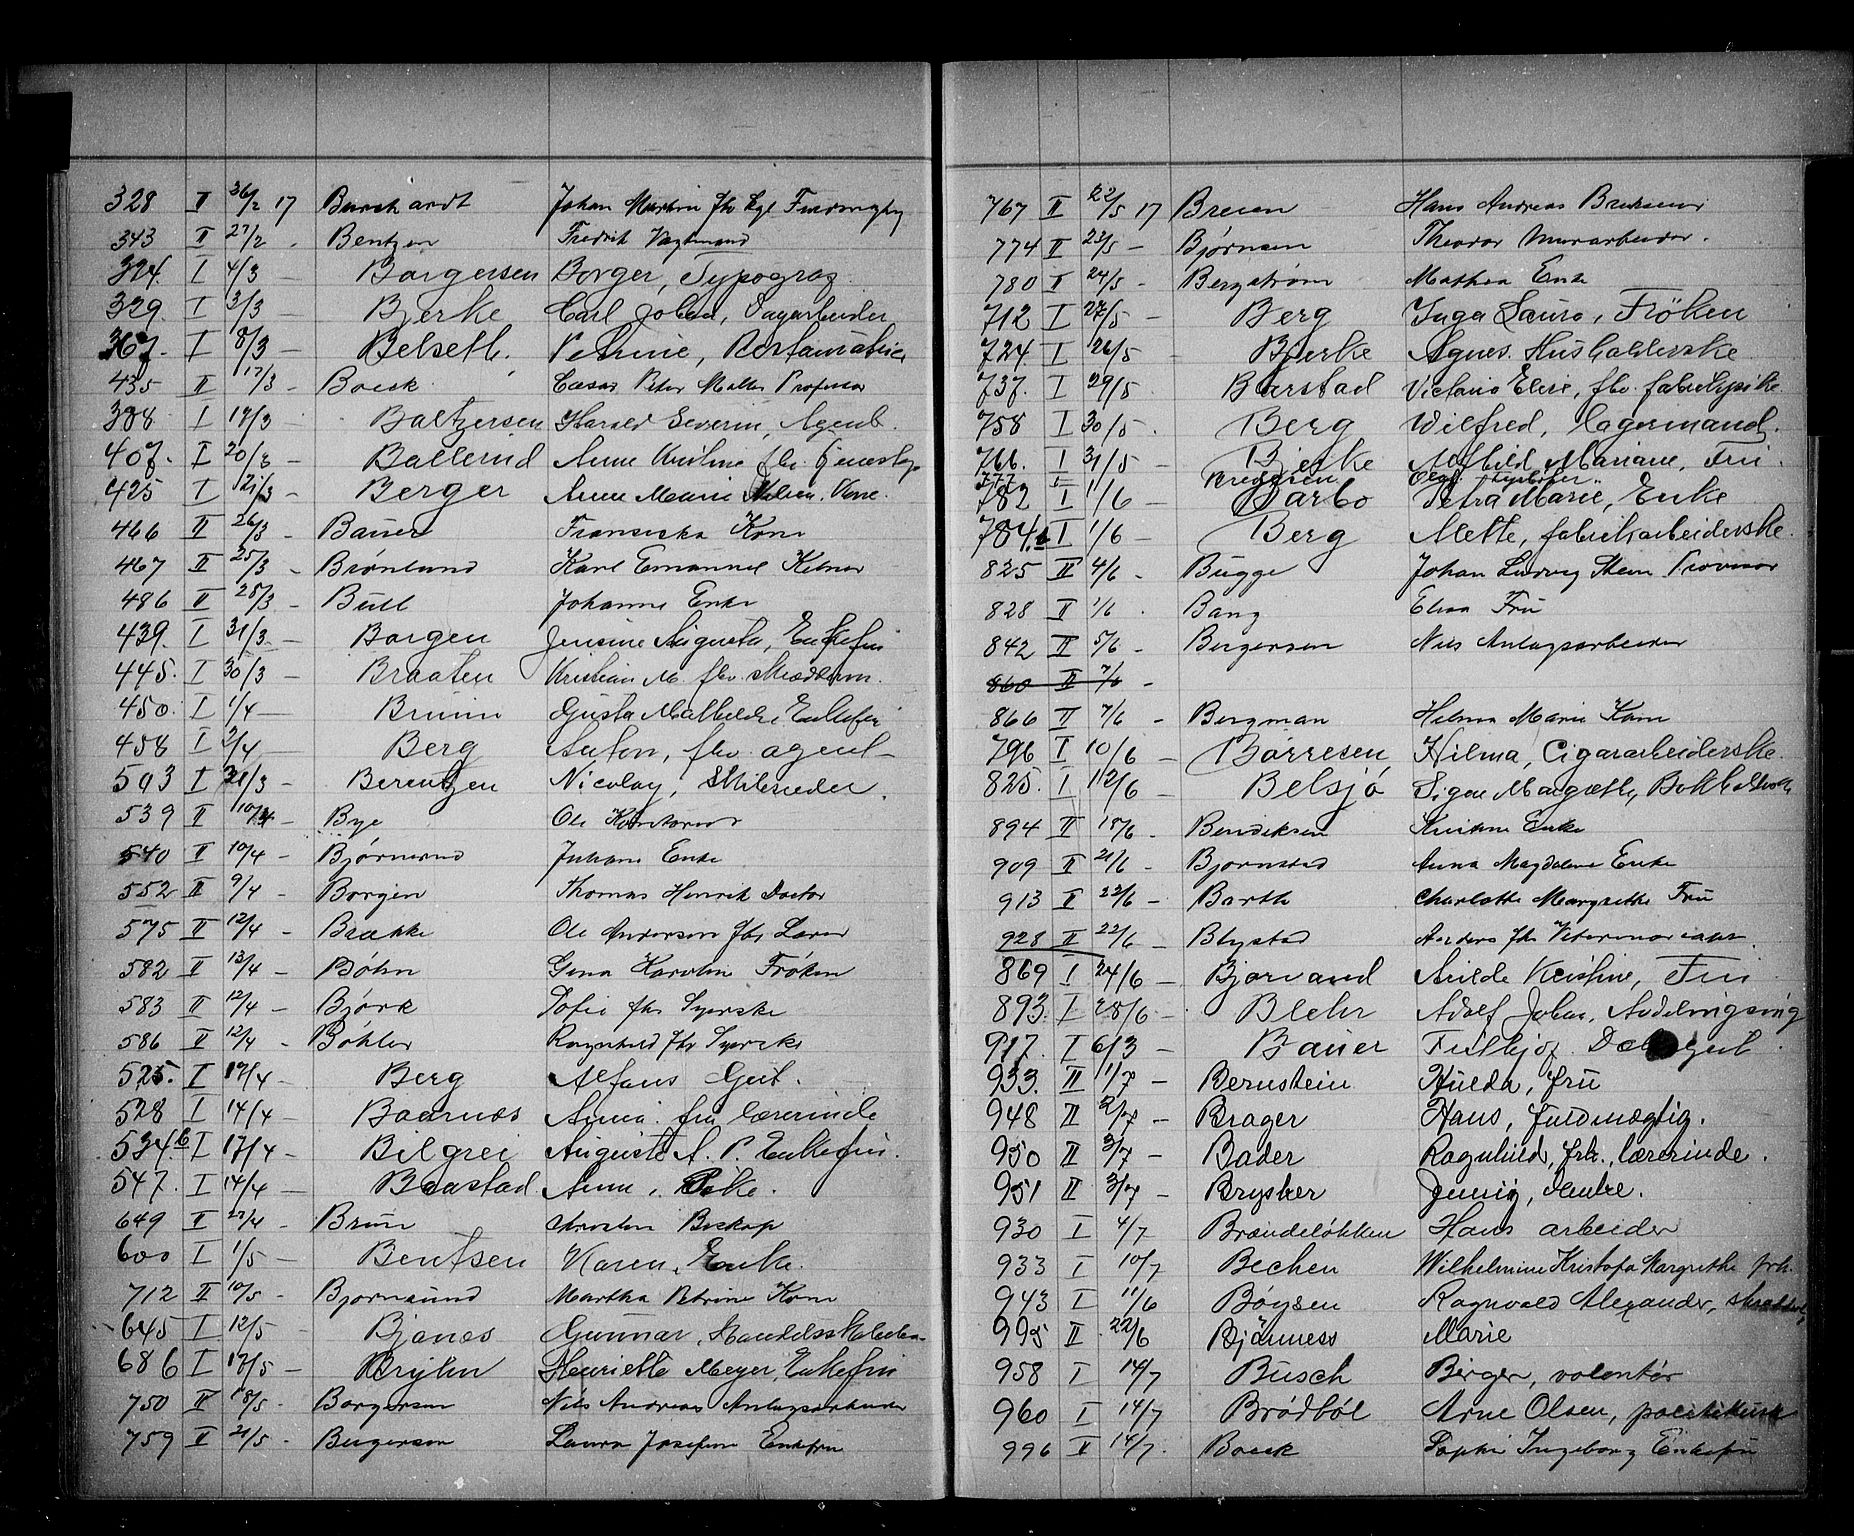 328 II 26/2 17 Burchardt Johan Martin fhv
343 II 27/2 - Bentzen Fredrik Vagtmand
324. I 4/3 - Borgersen Borger, Typograf
329. I 3/3 - Bjerke Carl Johan, Sagarbeider
367. I 8/3 - Belseth. Petrine,
435 II 17/3 - Boeck Cæsar Peter Møller Professor
388 I 17/3 - Baltzersen Harald Severin, Agent.
407. I 20/3 - Ballerud Anne Kristine fhv.
425 I 21/3 - Berger Anne Marie
466 II 26/3 - Bauer Fransiska Kone
467 II 25/3 - Brønlund Karl Emanuel Kelner
486 II 28/3 - Bull Johanne Enke
439. I 31/3 - Borgen Jensine Augusta, Enkefru
445. I 30/3 - Braaten Kristian M. fhv.
450. I 1/4 - Bruun Gusta Mathilde, Enkefru
458 I 2/4 - Berg Anton, fhv. agent
503 I 31/3 - Berentzen Nicolay,
539 II 10/4 - Bye Ole Kontorist
540 II 10/4 - Bjørnerud Juliane Enke
552 II 9/4 - Borgen Thomas Henrik Doctor
575 II 12/4 - Brække Ole Anderson fhv Lærer
582 II 13/4 - Bøhn Gina Karoline Frøken
583 II 12/4 - Bjørk Sofie fhv Syerske
586 II 12/4 - Bøhler Ragnhild fhv Syerske
525. I 17/4 - Berg Alfons Gut.
528 I 14/4 - Baarnæs Anna. fru lærerinde
534.b I 17/4 - Bilgrei Auguste A. P. Enkefru.
547. I 14/4 - Beastad Anne, Pike.
649 II 27/4 - Brun Biskop
600 I 1/5 - Bentsen Karen, Enke.
712 II 10/5 - Bjørnsund Martha Petrine Kone
645 I 12/5 - Bjanæs Gunnar,
686 I 17/5 - Henriette Meyer, Enkefru
750 II 18/5 - Borgersen Nils Andreas Anlægsarbeider
759 II 21/5 - Birgerson Laura Josefine Enkefru
767 II 22/5 17 Breien Hans Andreas
774 II 23/5 - Bjørnsen Theodor Murarbeider.
780 II 24/5 - Bergstrøm Mathea Enke
712 I 27/5 - Berg Inga Laura, Fröken
724. I 26/5 - Bjerke Agnes. Husholderske
737. I 29/5 - Barstad Victoria Elise, fhv. fabrikpike
758 I 30/5 - Berg Wilfred, lagermand.
766. I 31/5 - Bjerke Mathilde Mariane, Fru.
777 I Bredesen Olga
782 I 1/6 - Darbo Petra Marie, Enke
784.b I 1/6 - Berg Mette, fabrikarbeiderske.
825 II 4/6 - Bugge Johan Ludvig Steen Provisor
828 II 1/6 - Bang Elisa Fru
842 II 5/6 - Birgersen Nils Anlægsarbeider
860 II 7/6 -
866 II 7/6 - Bergman Hilma Marie Kone
796 I 10/6 - Børresen, Hilma, Cigararbeiderske.
825. I 12/6 - Belsjø Signe Margrethe,
894 II 18/6 - Bendiksen Kristine Enke
909 II 21/6 - Bjørnstad Anna Magdalene Enke
913 II 22/6 - Barth Charlotte Margrethe Fru
928 II 22/6 - Blystad Anders fhv
869 I 24/6 - Bjørvand Arilde Kristine, Fru
893. I 28/6 - Blehr Adolf Johan, Avdelingsing
917. I 6/3 - Bauer Fridtjof.
933. II 1/7 - Bernstein Hulda, fru
948 II 2/7 - Brager Hans, fuldmægtig.
950 II 3/7 - Bader Ragnhild, frk., lærerinde.
951 II 3/7 - Brysker Jenny, Enke.
930 I 4/7 Brændeløkken Hans arbeider
933 I 10/7 Bechen Wilhelmine Kristofa Margrethe frk.
943 I 11/6 Bøysen Ragnvald Alexander,
995 II 22/6 Bjänness Marie
958 I 14/7 Busch Birger, volontør
960 I 14/7 Brødbøl Arne Olsen, politikust
996 II 14/7. Boeck Sophie Ingeborg Enkefru